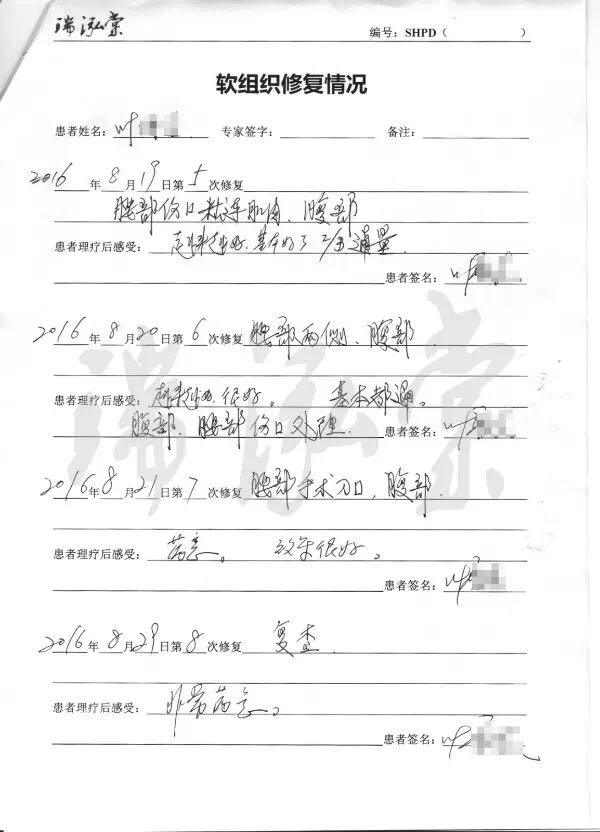 瑞泓棠
编号：SHPD（ ）
软组织修复情况
患者姓名：叶 专家签字： 备注：
2016年8月19日第5次修复
腰部伤口粘连肌肉、腹部
患者理疗后感受：越来越好、基本好了
患者签名：叶
2016年8月20日第6次修复 腰部两侧、腹部
患者理疗后感受：越来越好、很好。 基本都通。
腹部、腰部伤口处理 患者签名：叶
2016年8月21日第7次修复 腰部手术刀口，腹部
患者理疗后感受：满意。 效果很好。
患者签名：叶
2016年8月29日第8次修复 复查
患者理疗后感受：非常满意。
患者签名：叶
瑞泓棠